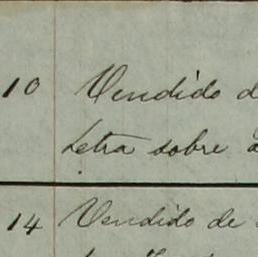 10 Vendido d
Letra sobre
14 Vendido de